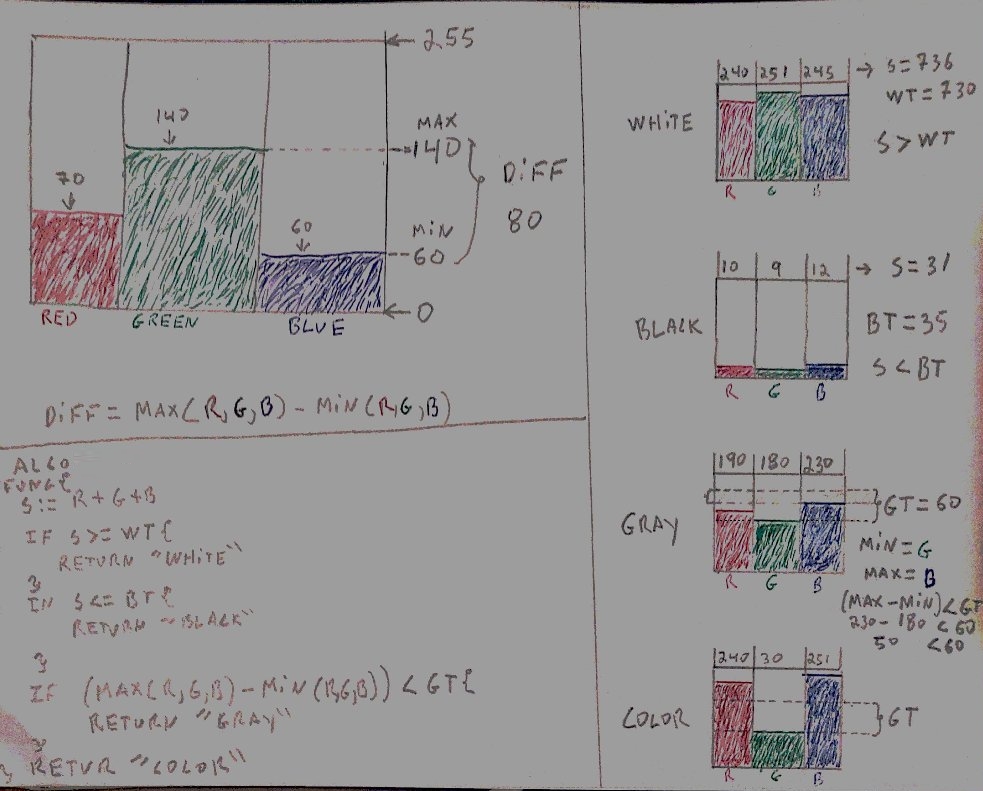 255
140
MAX
140
70
DIFF
80
60
MIN
60
0
RED GREEN BLUE
DIFF = MAX(R,G,B) - MIN(R,G,B)
ALGO
FUNC{
S:= R+G+B
IF S>= WT{
RETURN "WHITE"
}
IN S<= BT{
RETURN "BLACK"
}
IF (MAX(R,G,B) - MIN(R,G,B)) < GT{
RETURN "GRAY"
}
} RETUR "COLOR"
240 251 245 → S=736
WT=730
WHITE
S>WT
R G B
10 9 12 → S=31
BLACK
BT=35
S<BT
R G B
190 180 230
GT=60
GRAY
MIN=G
R G B
MAX=B
(MAX-MIN)<GT
230-180 <60
50 <60
240 30 251
COLOR
GT
R G B